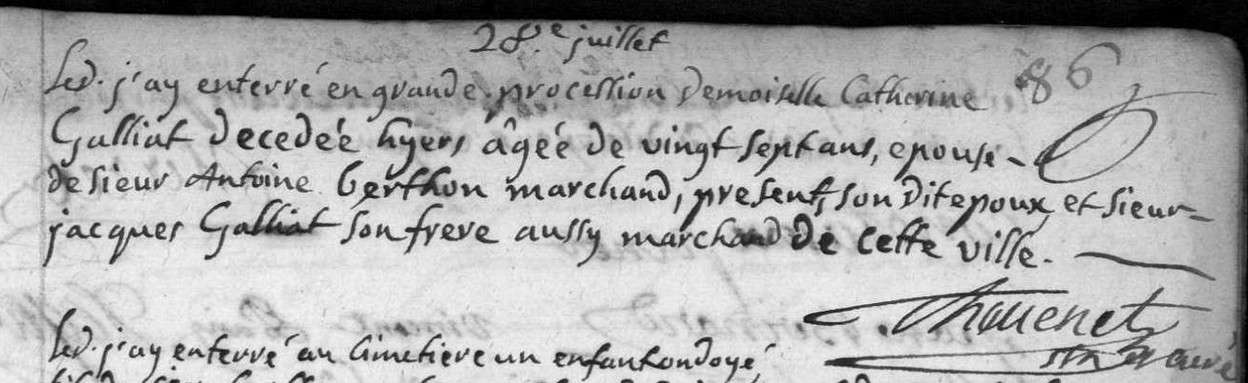 28.e juillet
Led. j'ay enterré en grande procession Demoiselle Catherine 86
Galliat decedeé hyers âgeé de vingt sept ans, epouse
de sieur Antoine Berthon marchand, presents, son dit epoux, et sieur
jacques Galliat son frere aussy marchand de cette ville.
Thouenet
curé
Led. j'ay enterré au Cimetiere un enfant ondoyé,